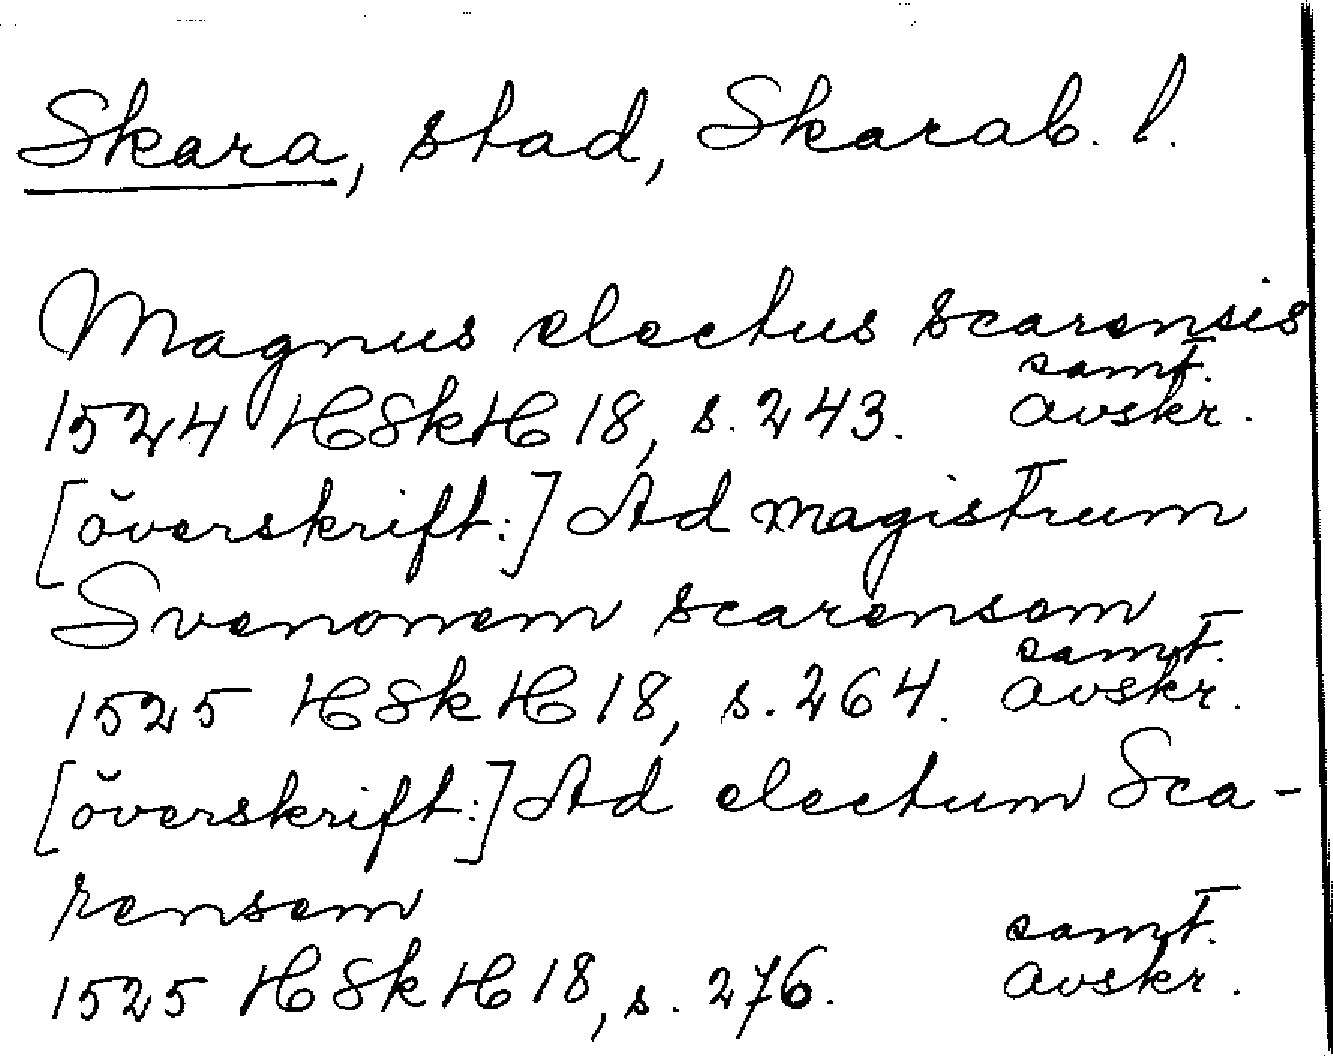 Skara, stad, Skarab. l.
Magnus electus scarensis
samt.
1524 HSkH 18, s. 243. avskr.
[överskrift:] Ad magistrum
Svenonem scarensem
samt.
1525 HSkH 18, s. 264. avskr.
[överskrift:] Ad electum Sca-
rensem
samt.
1525 HSkH 18, s. 276. avskr.